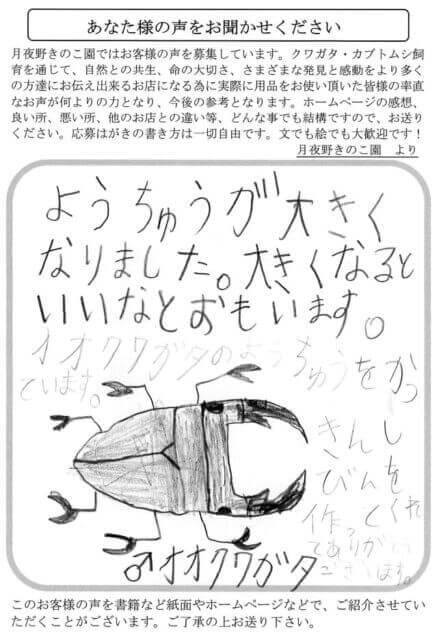 あなた様の声をお聞かせください
月夜野きのこ園ではお客様の声を募集しています。クワガタ・カブトムシ飼
育を通じて、自然との共生、命の大切さ、さまざまな発見と感動をより多く
の方達にお伝え出来るお店になる為に実際に用品をお使い頂いた皆様の率直
なお声が何よりの力となり、今後の参考となります。ホームページの感想、
良い所、悪い所、他のお店との違い等、どんな事でも結構ですので、お送り
ください。応募はがきの書き方は一切自由です。文でも絵でも大歓迎です！
月夜野きのこ園　より
ようちゅうが大きく
なりました。大きくなると
いいなとおもいます。
オオクワガタのようちゅうをかっ
ています。
きんし
びんを
作ってくれ
てありがとう
ございます。
♂オオクワガタ
このお客様の声を書籍など紙面やホームページなどで、ご紹介させてい
ただくことがございます。ご了承の上お送り下さい。